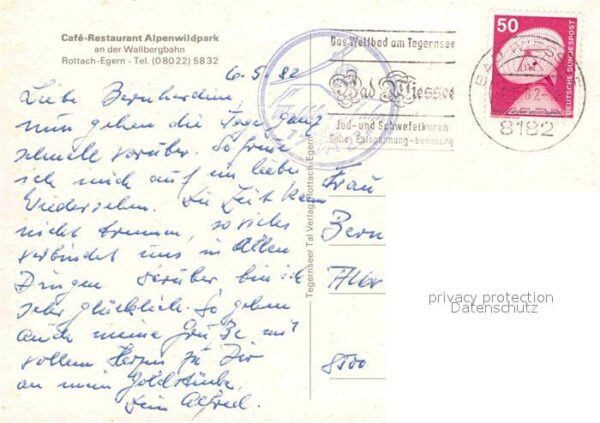 Café-Restaurant Alpenwildpark
an der Wallbergbahn
Rottach-Egern - Tel. (08022) 5832
6.5.82
Liebe Bernhardine
nun gehen die Tage ganz
schnelle vorüber. So freue
ich mich auf ein liebes
Wiedersehen. Die Zeit kann
nicht trennen, so vieles
verbindet uns in Allen
Dingen darüber, bin ich
sehr glücklich. So gehen
auch meine Grüße mit
vollem Herzen zu Dir
an mein Goldstück.
Dein Alfred.
Tegernseer Tal Verlag, Rottach-Egern
Das Weltbad am Tegernsee
Bad Wiessee
Jod- und Schwefelkuren
50
DEUTSCHE BUNDESPOST
BAD WIESSEE
8182
Frau
Bern
8500
privacy protection
Datenschutz